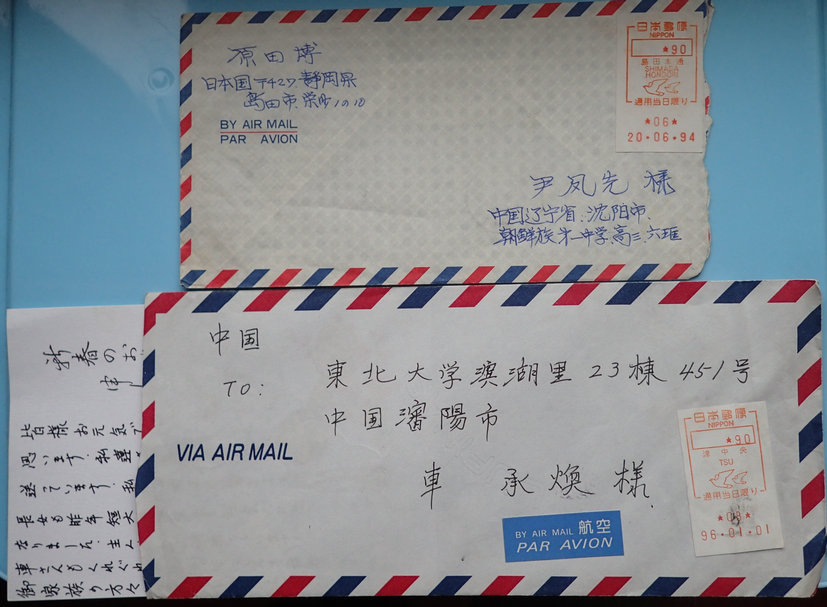 原田博
日本国 〒427 静岡県
島田市.栄町10の10
BY AIR MAIL
PAR AVION
日本郵便
NIPPON
*90
島田本通
SHIMADA
HONDORI
適用当日限り
*06*
20・06・94
尹凤先様
中国辽宁省.沈阳市.
朝鮮族第一中学.高三.六班
中国
TO:
東北大学濱湖里23棟451号
中国瀋陽市
VIA AIR MAIL
車 承煥 様
BY AIR MAIL 航空
PAR AVION
日本郵便
NIPPON
*90
津中央
TSU
適用当日限り
96・01・01
新春のお
皆様お元気で
思います.私達
送っています.私
長女も昨年短大
なりました.主人
車さんもくれぐれ
御家族の方々